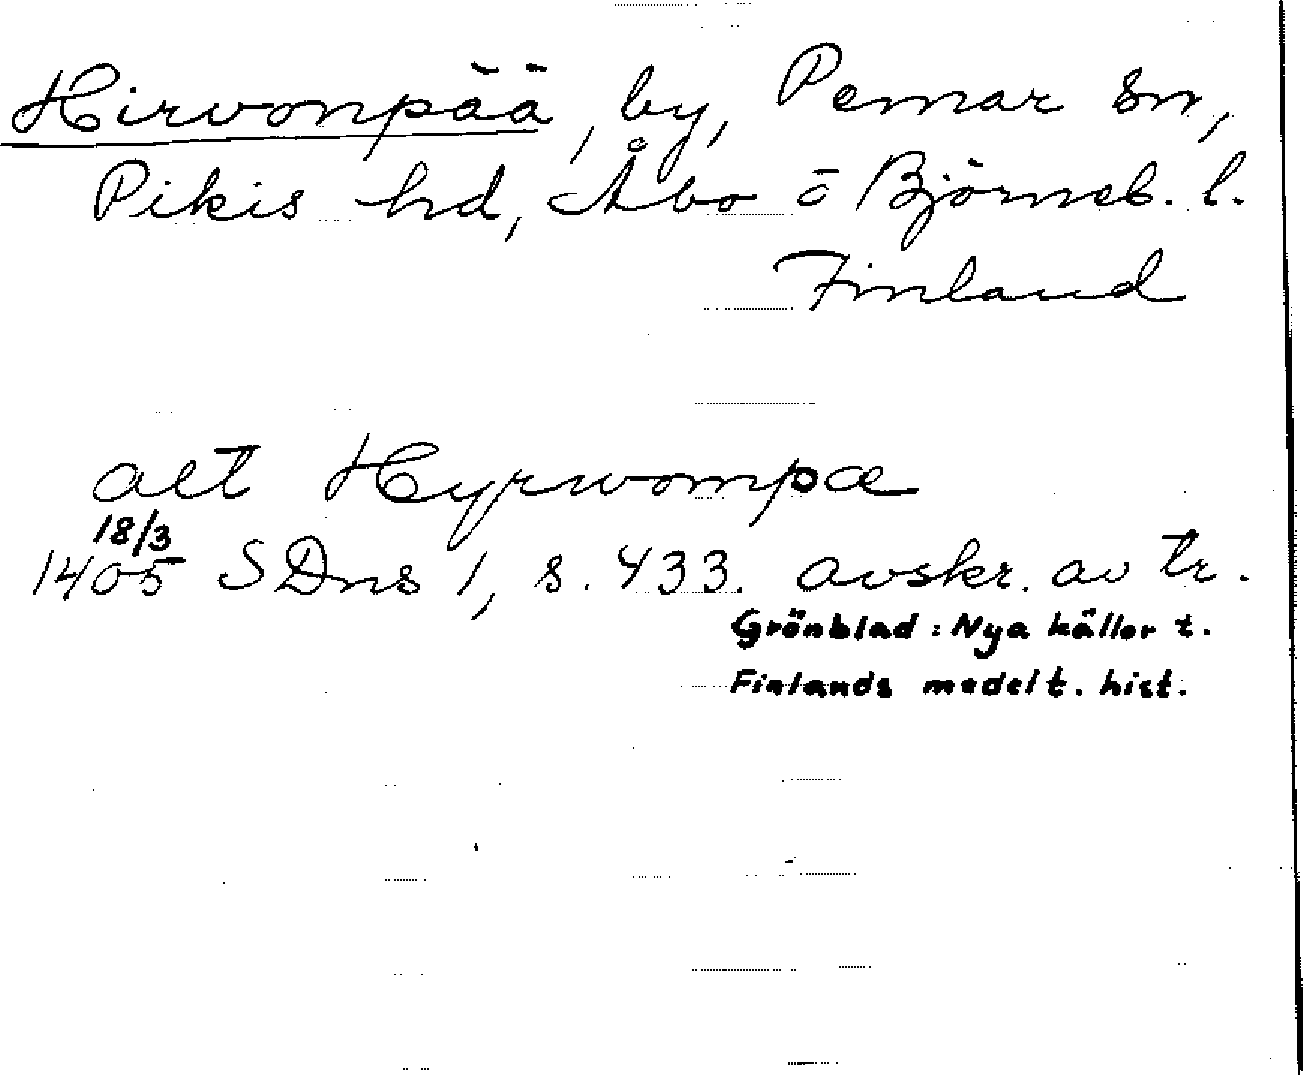 Hirvonpää, by, Pemar sn,
Pikis hd, Åbo o Björneb. l.
Finland
all Hyrwompæ
18/3
1405 SDns 1, s. 433. avskr. av tr.
Grönblad: Nya källor t.
Finlands medelt. hist.